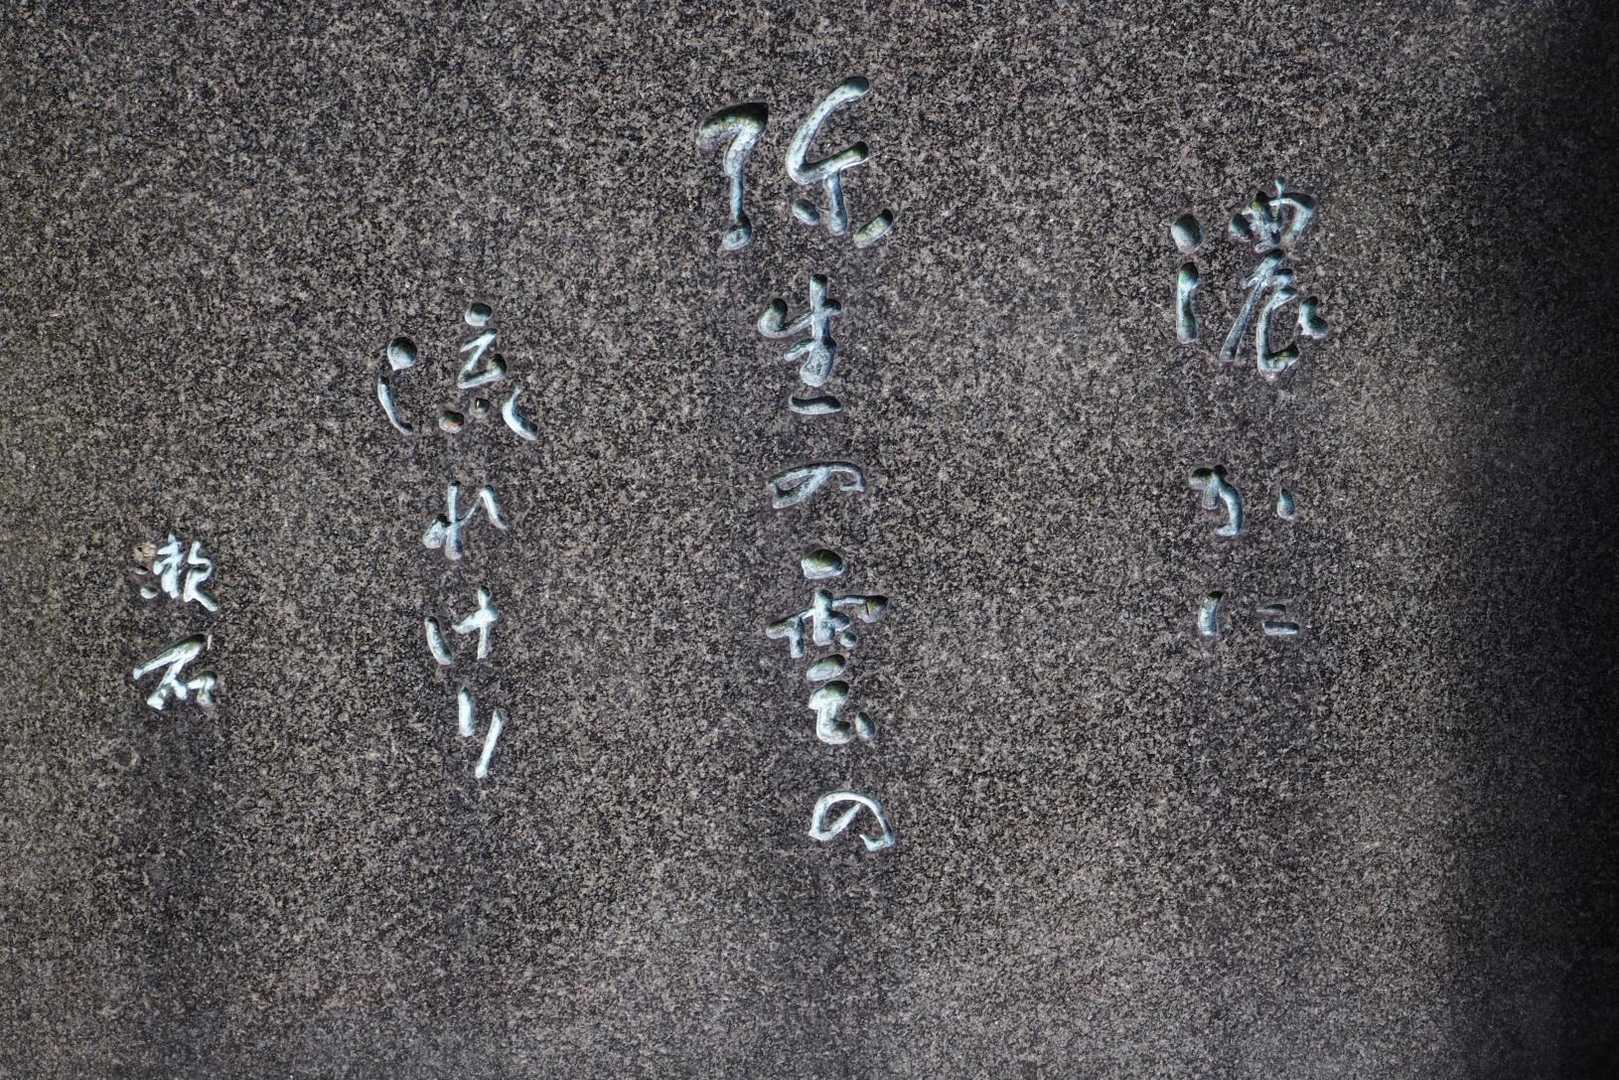 濃かに
弥生の雲の
流れけり
漱石